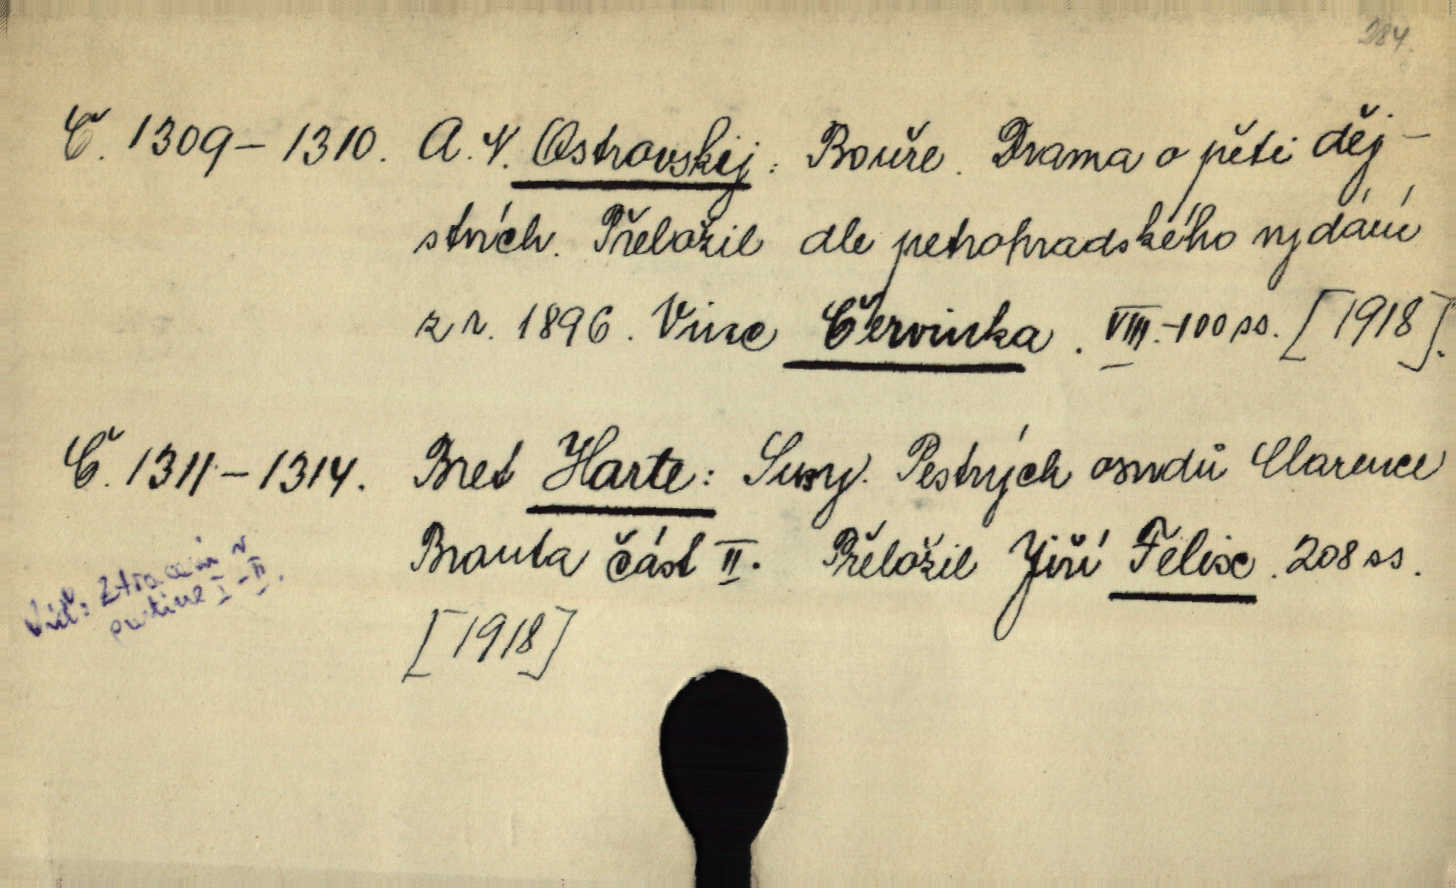 284.
Č. 1309 – 1310. A. N. Ostrovskij: Bouře. Drama o pěti děj-
stvích. Přeložil dle petrohradského vydání
z r. 1896. Vinc Červinka. VIII.-100 ss. [1918].
Č. 1311 – 1314. Bret Harte: Susy. Pestrých osudů Clarence
Branta část II. Přeložil Jiří Félix. 208 ss.
[1918]
Viz: Ztraceni v
pustině I-II.